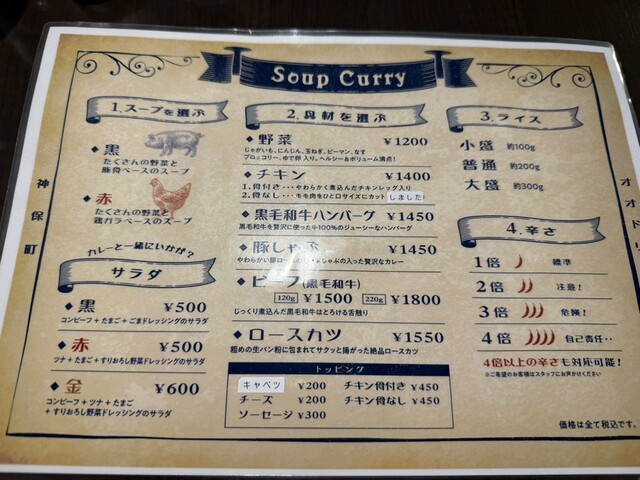 Soup Curry
1.スープを選ぶ
黒
たくさんの野菜と
豚骨ベースのスープ
赤
たくさんの野菜と
鶏ガラベースのスープ
カレーと一緒にいかが?
サラダ
黒 ¥500
コンビーフ + たまご + ごまドレッシングのサラダ
赤 ¥500
ツナ + たまご + すりおろし野菜ドレッシングのサラダ
金 ¥600
コンビーフ + ツナ + たまご
+ すりおろし野菜ドレッシングのサラダ
2.具材を選ぶ
野菜 ¥1200
じゃがいも、にんじん、玉ねぎ、ピーマン、なす
ブロッコリー、ゆで卵 入り。ヘルシー&ボリューム満点!
チキン ¥1400
1.骨付き・・・やわらかく煮込んだチキンレッグ入り
2.骨なし・・・モモ肉をひと口サイズにカットしました!
黒毛和牛ハンバーグ ¥1450
黒毛和牛を贅沢に使った牛100%のジューシーなハンバーグ
豚しゃぶ ¥1450
やわらかい豚ロースの しゃぶの入った贅沢なカレー
ビーフ(黒毛和牛)
120g ¥1500 220g ¥1800
じっくり煮込んだ黒毛和牛はとろける舌触り
ロースカツ ¥1550
粗めの生パン粉に包まれてサクッと揚がった絶品ロースカツ
トッピング
キャベツ ¥200 チキン骨付き ¥450
チーズ ¥200 チキン骨なし ¥450
ソーセージ ¥300
3.ライス
小盛 約100g
普通 約200g
大盛 約300g
4.辛さ
1倍 標準
2倍 注意!
3倍 危険!
4倍 自己責任・・
4倍以上の辛さも対応可能!
※ご希望のお客様はスタッフにお声かけください
価格は全て税込です。
神保町
オオドリ